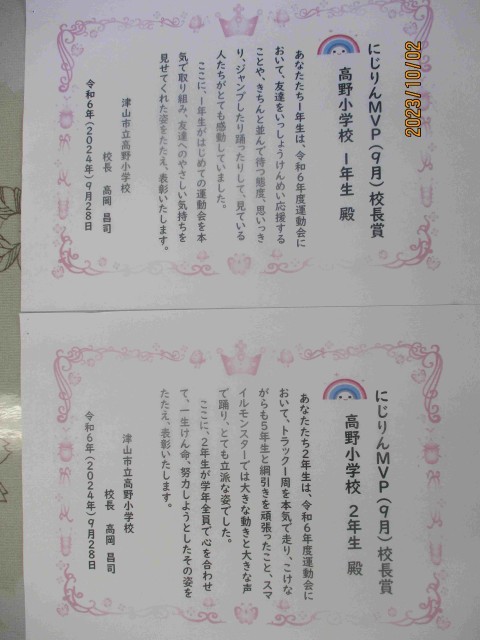 2023/10/02
にじりんMVP(9月)校長賞
高野小学校 1年生 殿
あなたたち1年生は、令和6年度運動会に
おいて、友達をいっしょうけんめい応援する
ことや、きちんと並んで待つ態度、思いっき
り、ジャンプしたり踊ったりして、見ている
人たちがとても感動していました。
ここに、1年生がはじめての運動会を本
気で取り組み、友達へのやさしい気持ちを
見せてくれた姿をたたえ、表彰いたします。
津山市立高野小学校
校長 高岡 昌司
令和6年(2024年)9月28日
にじりんMVP(9月)校長賞
高野小学校 2年生 殿
あなたたち2年生は、令和6年度運動会に
おいて、トラック1周を本気で走り、こけな
がらも5年生と綱引きを頑張ったこと、スマ
イルモンスターでは大きな動きと大きな声
で踊り、とても立派な姿でした。
ここに、2年生が学年全員で心を合わせ
て、一生けん命、努力しようとしたその姿を
たたえ、表彰いたします。
津山市立高野小学校
校長 高岡 昌司
令和6年(2024年)9月28日